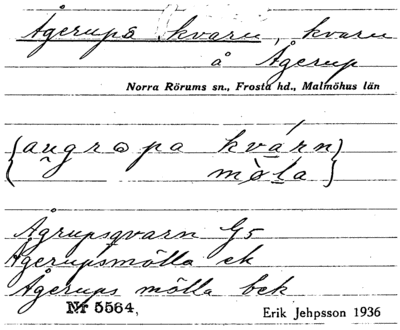 Ågerups kvarn, kvarn
å Ågerup
Norra Rörums sn., Frosta hd., Malmöhus län
(augropa kvárn)
möla
Ågrupsqvarn G5
Ågerupsmölla ek
Ågerups mölla bek
Nr 5564, Erik Jehpsson 1936